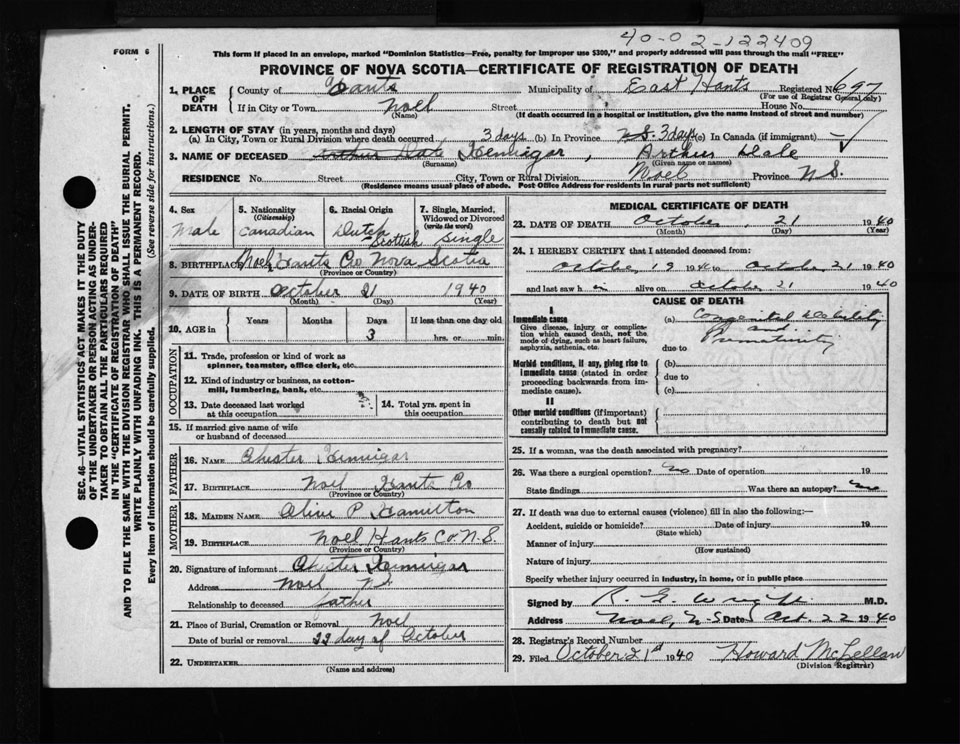 40-02-122409
FORM 6
This form if placed in an envelope, marked "Dominion Statistics—Free, penalty for improper use $300," and properly addressed will pass through the mail "FREE"
PROVINCE OF NOVA SCOTIA—CERTIFICATE OF REGISTRATION OF DEATH
1. PLACE OF DEATH County of Hants Municipality of East Hants Registered No. 697
(For use of Registrar General only)
If in City or Town Noel Street House No.
(Name) (If death occurred in a hospital or institution, give the name instead of street and number)
2. LENGTH OF STAY (in years, months and days)
(a) In City, Town or Rural Division where death occurred 3 days (b) In Province N.S. 3 days (c) In Canada (if immigrant)
3. NAME OF DECEASED Arthur Dale Hennigar, Arthur Dale
(Surname) (Given name or names)
RESIDENCE No. Street City, Town or Rural Division Noel Province N S.
(Residence means usual place of abode. Post Office Address for residents in rural parts not sufficient)
4. Sex Male
5. Nationality (Citizenship) Canadian
6. Racial Origin Dutch Scottish
7. Single, Married, Widowed or Divorced (write the word) Single
8. BIRTHPLACE Noel, Hants Co Nova Scotia
(Province or Country)
9. DATE OF BIRTH October 21 1940
(Month) (Day) (Year)
10. AGE in Years Months Days 3 If less than one day old hrs. or min.
OCCUPATION
11. Trade, profession or kind of work as spinner, teamster, office clerk, etc.
12. Kind of industry or business, as cotton-mill, lumbering, bank, etc.
13. Date deceased last worked at this occupation
14. Total yrs. spent in this occupation
15. If married give name of wife or husband of deceased
FATHER
16. NAME Chester Hennigar
17. BIRTHPLACE Noel Hants Co
(Province or Country)
MOTHER
18. MAIDEN NAME Aline P. Hamilton
19. BIRTHPLACE Noel Hants Co. N.S.
(Province or Country)
20. Signature of informant Chester Hennigar
Address Noel N S
Relationship to deceased father
21. Place of Burial, Cremation or Removal Noel
Date of burial or removal 22 day of October
22. UNDERTAKER
(Name and address)
MEDICAL CERTIFICATE OF DEATH
23. DATE OF DEATH October 21 1940
(Month) (Day) (Year)
24. I HEREBY CERTIFY that I attended deceased from:
October 19 1940 to October 21 1940
and last saw h im alive on October 21 1940
CAUSE OF DEATH
I
Immediate cause
Give disease, injury or complication which caused death, not the mode of dying, such as heart failure, asphyxia, asthenia, etc.
(a) Congenital Debility and Prematurity
due to
Morbid conditions, if any, giving rise to immediate cause (stated in order proceeding backwards from immediate cause).
(b)
due to
(c)
II
Other morbid conditions (if important) contributing to death but not causally related to immediate cause.
25. If a woman, was the death associated with pregnancy?
26. Was there a surgical operation? No Date of operation 19
State findings Was there an autopsy? No
27. If death was due to external causes (violence) fill in also the following:—
Accident, suicide or homicide? Date of injury 19
(State which)
Manner of injury
(How sustained)
Nature of injury
Specify whether injury occurred in industry, in home, or in public place
Signed by R. G. Wright M.D.
Address Noel, N.S. Date Oct. 22 1940
28. Registrar's Record Number
29. Filed October 21st 1940 Howard McLellan
(Division Registrar)
SEC. 46—VITAL STATISTICS ACT MAKES IT THE DUTY
OF THE UNDERTAKER OR PERSON ACTING AS UNDER-
TAKER TO OBTAIN ALL THE PARTICULARS REQUIRED
IN THE "CERTIFICATE OF REGISTRATION OF DEATH"
AND TO FILE THE SAME WITH THE DIVISION REGISTRAR WHO SHALL ISSUE THE BURIAL PERMIT.
WRITE PLAINLY WITH UNFADING INK. THIS IS A PERMANENT RECORD.
Every item of information should be carefully supplied. (See reverse side for instructions.)